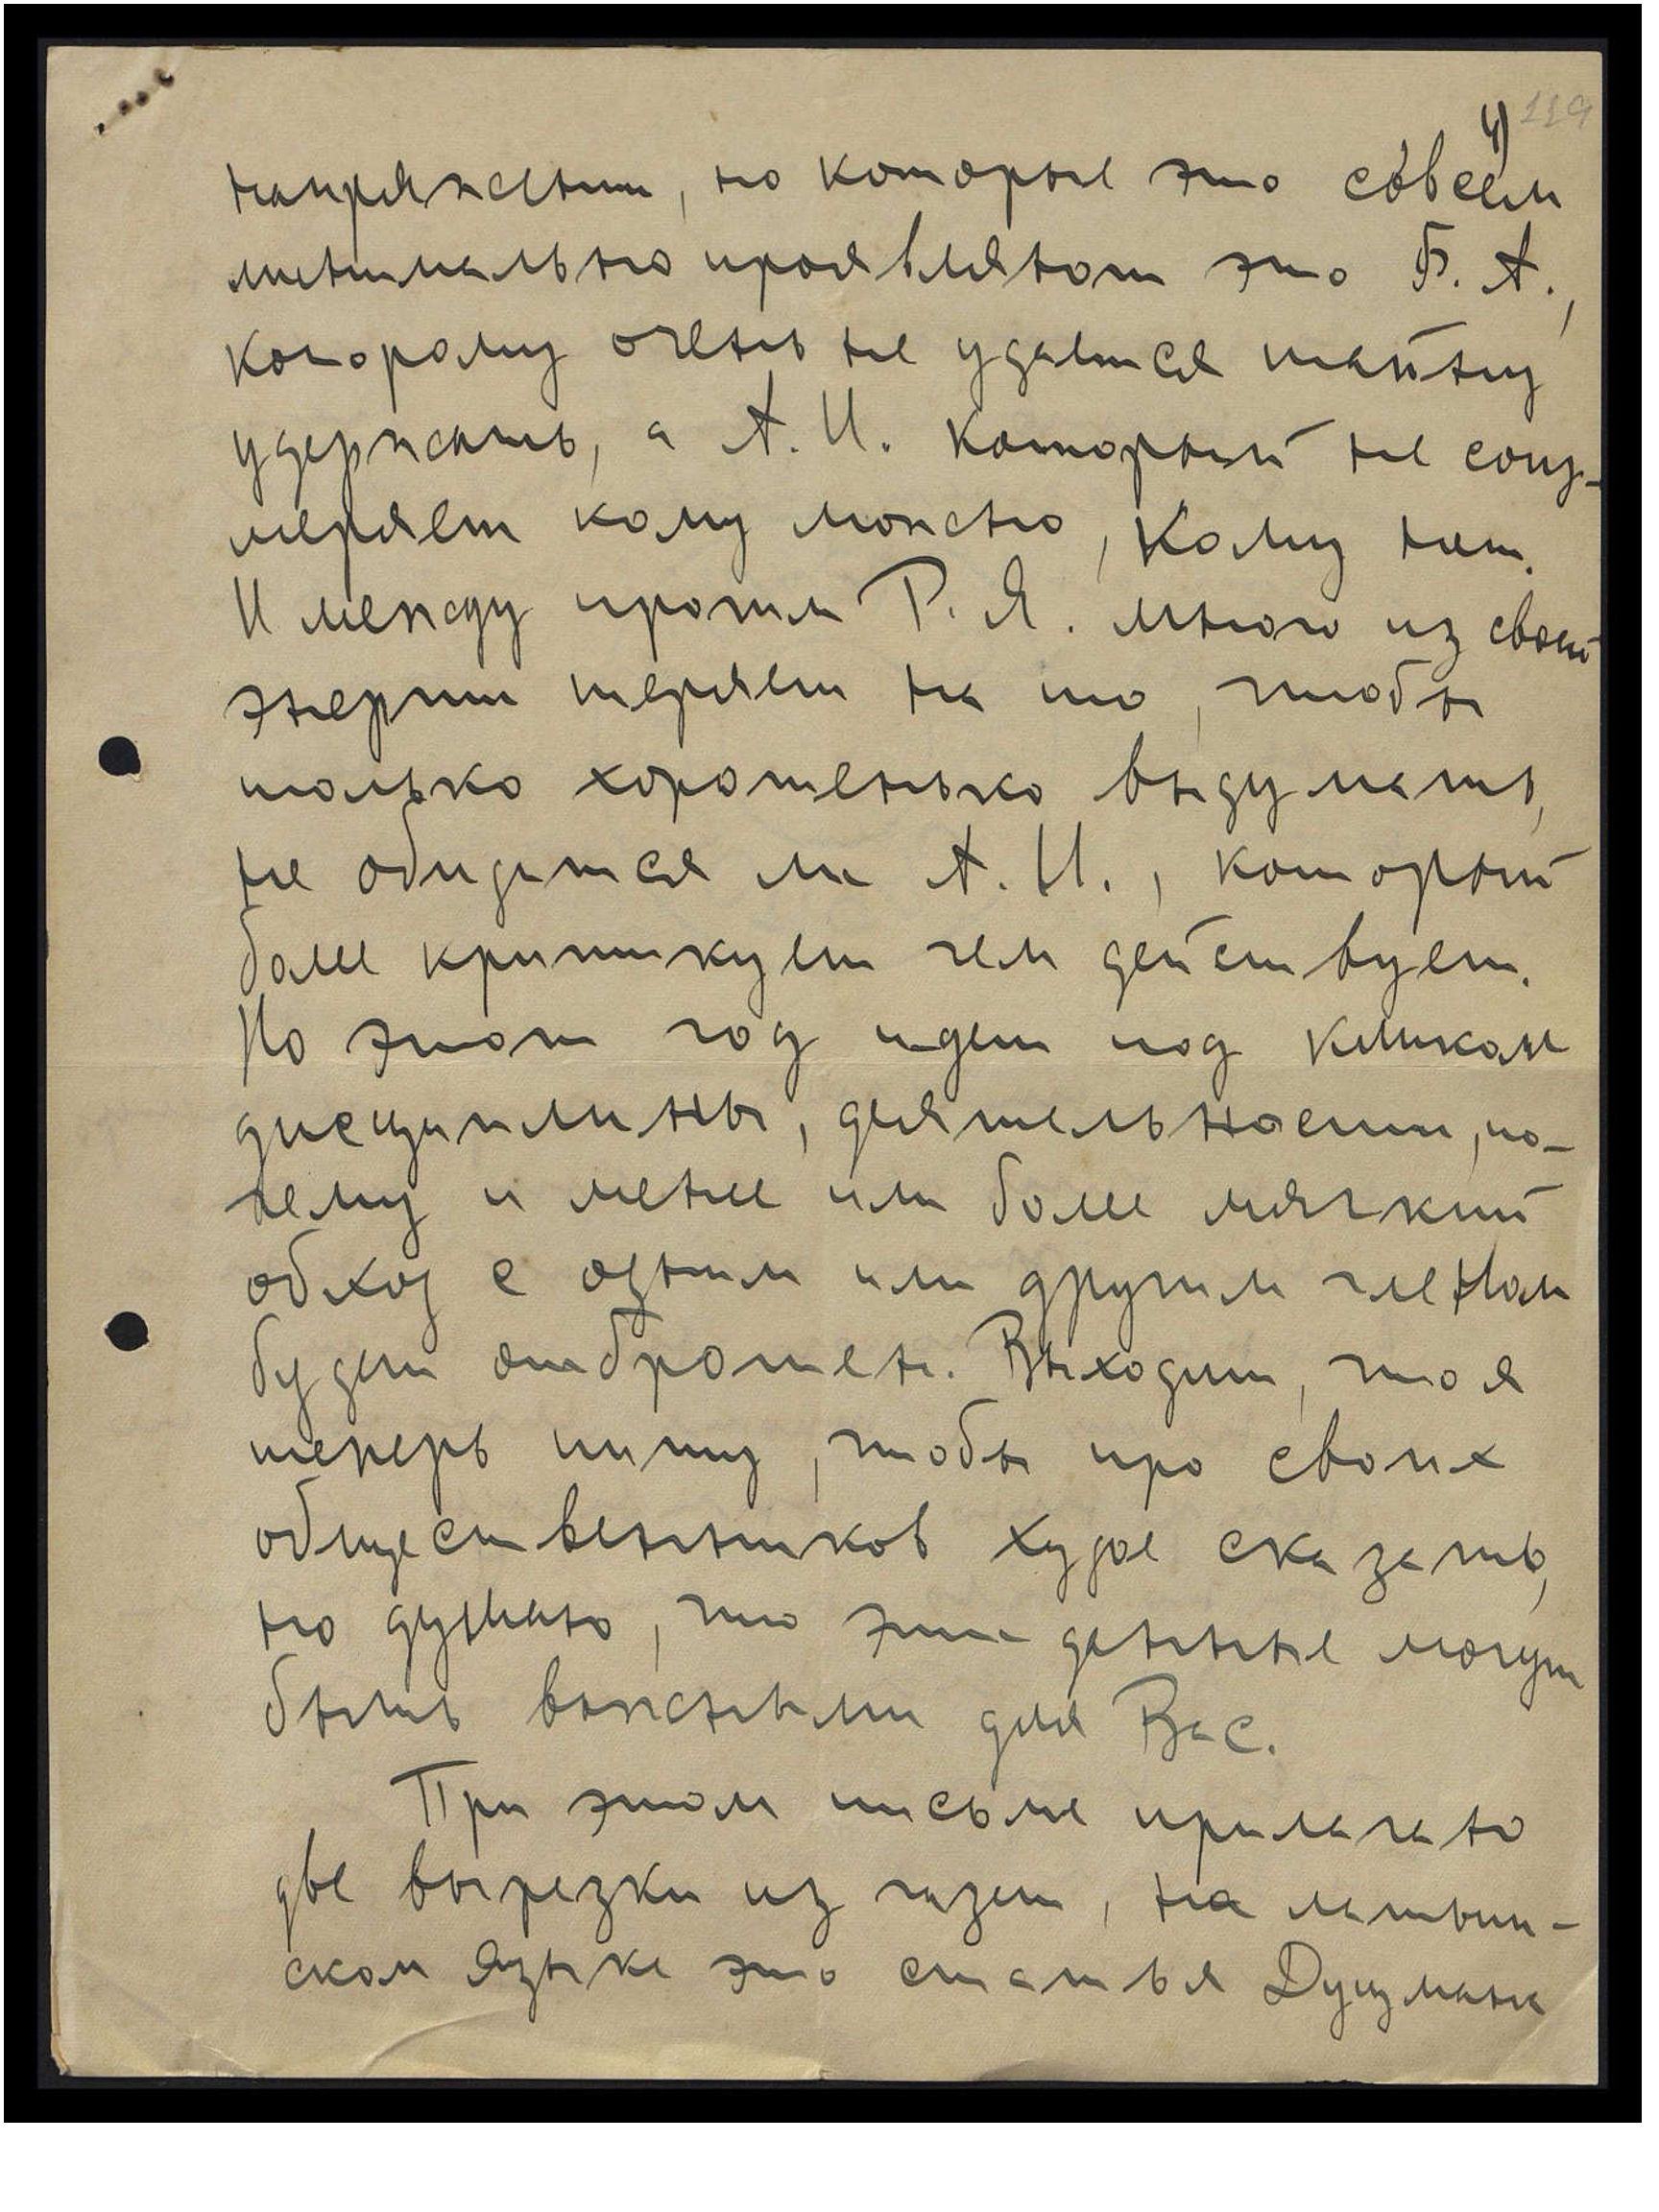 4) 119
напряжении, но которые это совсем
минимально проявляют это Б. А.,
которому очень не удается тайну
удержать, а А. И. который не соиз-
меряет кому можно, кому нет.
И между протим Р. Я. много из своей
энергии теряет на то, чтобы
только хорошенько выдумать,
не обидется ли А. И., который
более критикует чем действует.
Но этот год идет под кликом
дисциплины, деятельности, по-
чему и менее или более мягкий
обход с одним или другим членом
будет отброшен. Выходит, что я
теперь пишу, чтобы про своих
общественников худое сказать,
но думаю, что эти данные могут
быть важными для Вас.
При этом письме прилагаю
две вырезки из газет, на латвий-
ском языке это статья Дуцмана